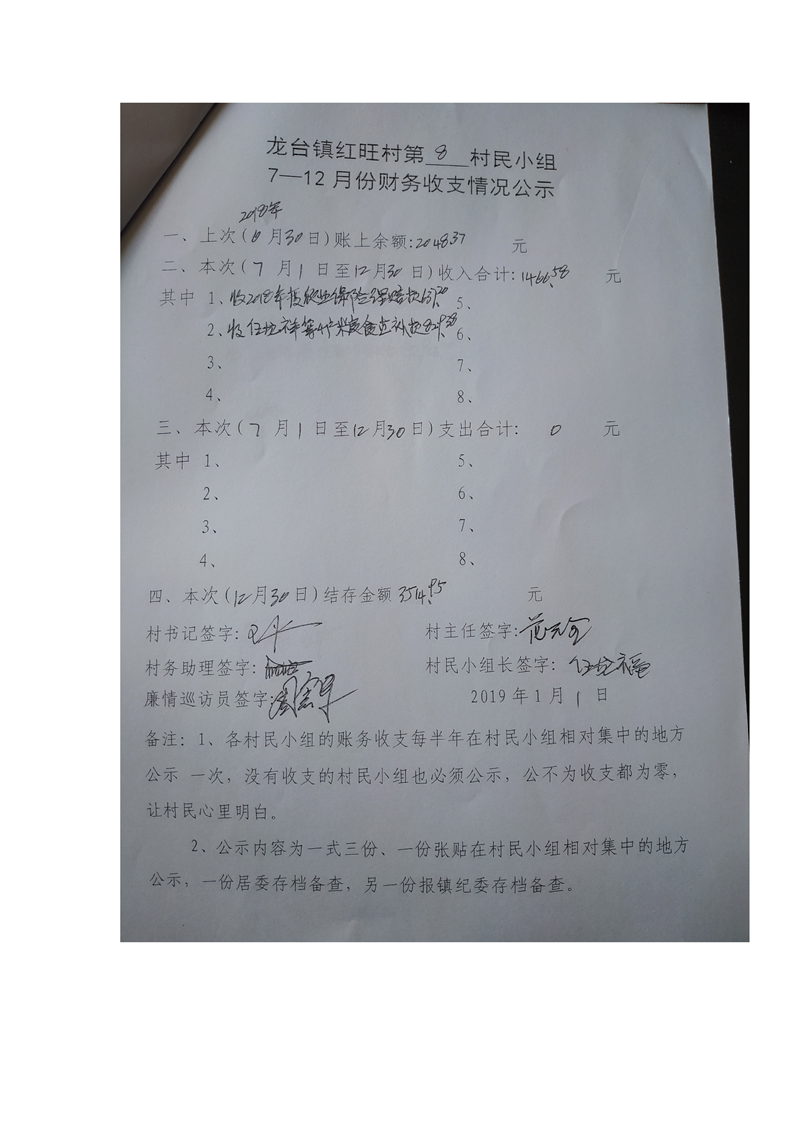 龙台镇红旺村第 8 村民小组
7—12月份财务收支情况公示
2018年
一、上次(6月30日)账上余额:2048.37 元
二、本次(7月1日至12月30日)收入合计:1466.58 元
其中 1、收2018年 保险 5、
2、收任 等4户粮食直补 6、
3、 7、
4、 8、
三、本次(7月1日至12月30日)支出合计: 0 元
其中 1、 5、
2、 6、
3、 7、
4、 8、
四、本次(12月30日)结存金额3514.95 元
村书记签字: 村主任签字:
村务助理签字: 村民小组长签字:
廉情巡访员签字: 2019年1月1日
备注:1、各村民小组的账务收支每半年在村民小组相对集中的地方
公示 一次，没有收支的村民小组也必须公示，公不为收支都为零，
让村民心里明白。
2、公示内容为一式三份、一份张贴在村民小组相对集中的地方
公示，一份居委存档备查，另一份报镇纪委存档备查。